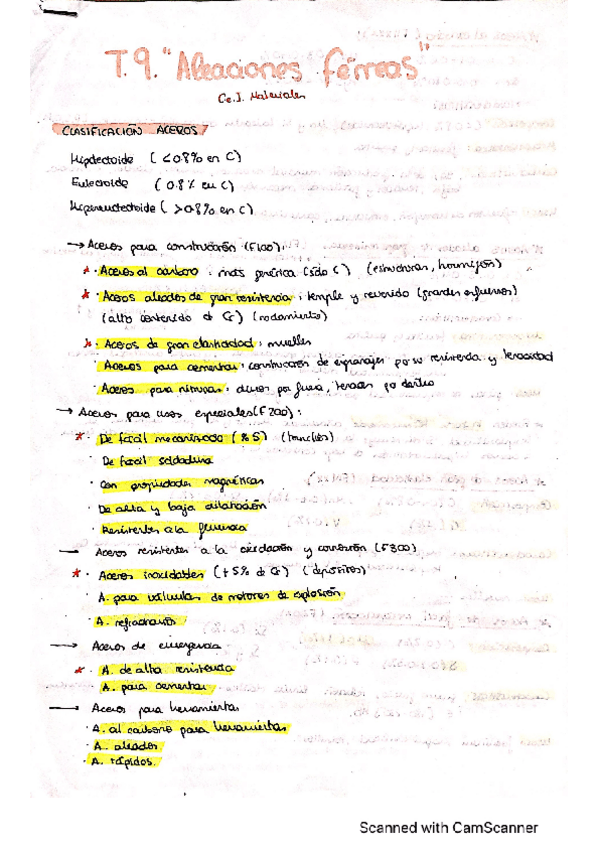 T.9. "Aleaciones férreas"
Ce.I. Materiales
CLASIFICACIÓN ACEROS
Hipoectoide (<0.8% en C)
Eutectoide (0.8% en C)
Hipereutectoide (>0.8% en C)
→ Aceros para construcción (F100):
* · Aceros al carbono: más genérica (sólo C) (estructuras, hormigón)
* · Aceros aleados de gran resistencia: temple y revenido (grandes esfuerzos)
(alto contenido de Cr) (rodamiento)
* · Aceros de gran elasticidad: muelles
· Aceros para cementar: construcción de engranajes por su resistencia y tenacidad
· Aceros para nitrurar: duros por fuera, tenaces por dentro
→ Aceros para usos especiales (F200):
* · De fácil mecanizado (% S) (tornillos)
· De fácil soldadura
· Con propiedades magnéticas
· De alta y baja dilatación
· Resistentes a la fluencia
— Aceros resistentes a la oxidación y corrosión (F300)
* · Aceros inoxidables (+5% de Cr) (depósitos)
· A. para válvulas de motores de explosión
· A. refractarios
→ Aceros de emergencia
* · A. de alta resistencia
· A. para cementar
→ Aceros para herramientas
· A. al carbono para herramientas
· A. aleados
· A. rápidos.
Scanned with CamScanner